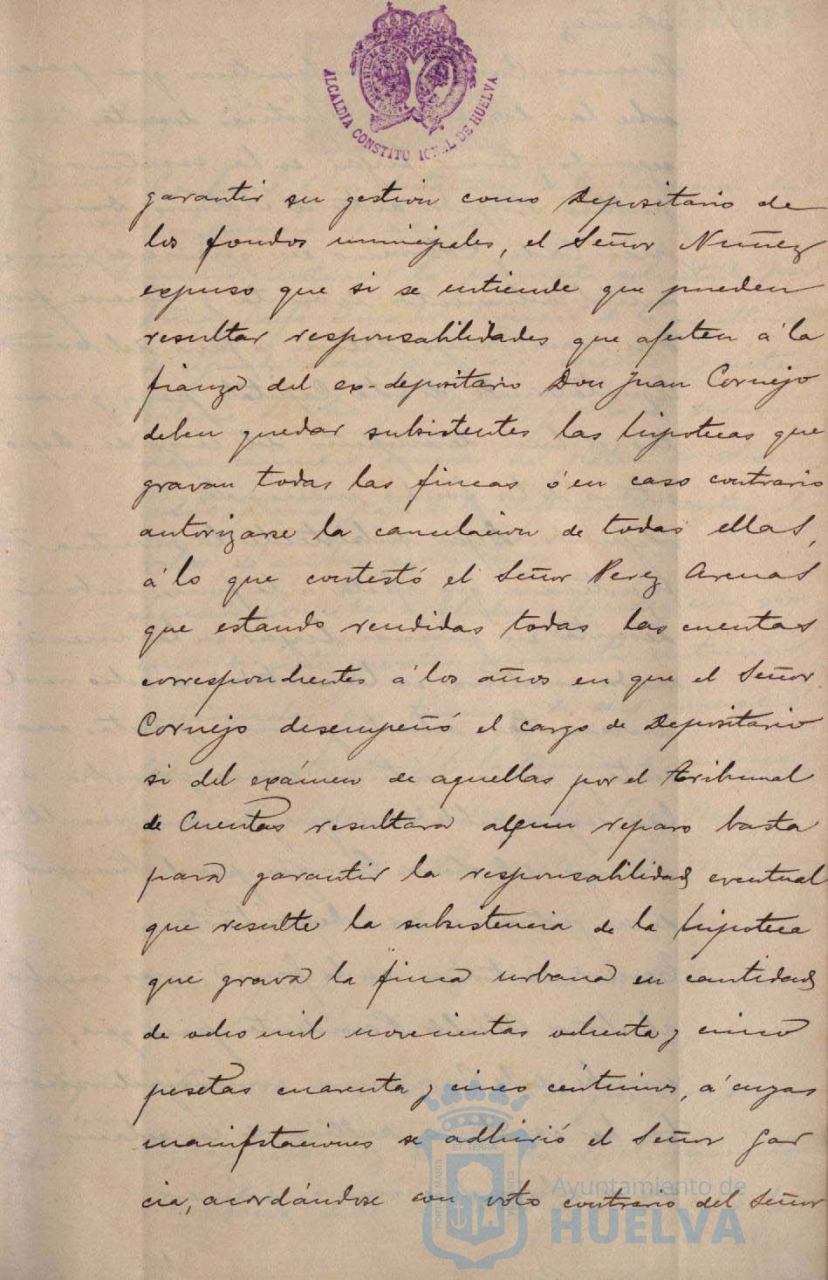 ALCALDIA CONSTITUCIONAL DE HUELVA
garantir su gestión como Depositario de
los fondos municipales, el Señor Nuñez
expuso que si se entiende que pueden
resultar responsabilidades que afecten á la
fianza del ex-depositario Don Juan Cornejo
deben quedar subsistentes las hipotecas que
gravan todas las fincas ó en caso contrario
autorizarse la cancelacion de todas ellas,
á lo que contestó el Señor Perez Arenas
que estando rendidas todas las cuentas
correspondientes á los años en que el Señor
Cornejo desempeñó el cargo de Depositario
si del exámen de aquellas por el Tribunal
de Cuentas resultara algun reparo basta
para garantir la responsabilidad eventual
que resulte la subsistencia de la hipoteca
que grava la finca urbana en cantidad
de ocho mil novecientas ochenta y cinco
pesetas cuarenta y cinco céntimos, á cuyas
manifestaciones se adhirió el Señor Gar
cia, acordándose con voto contrario del Señor
Ayuntamiento de
HUELVA